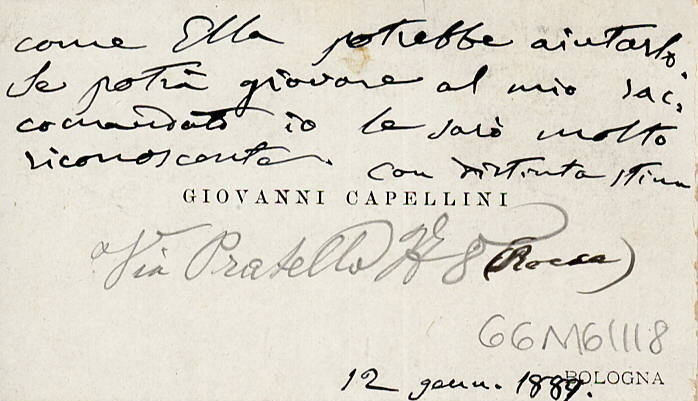 come Ella potrebbe aiutarlo.
Se potrà giovare al mio rac=
comandato io le sarò molto
riconoscente. con distinta stima
GIOVANNI CAPELLINI
Via Pratello N 8 (Rocca)
GGM61118
12 genn. 1889.
BOLOGNA